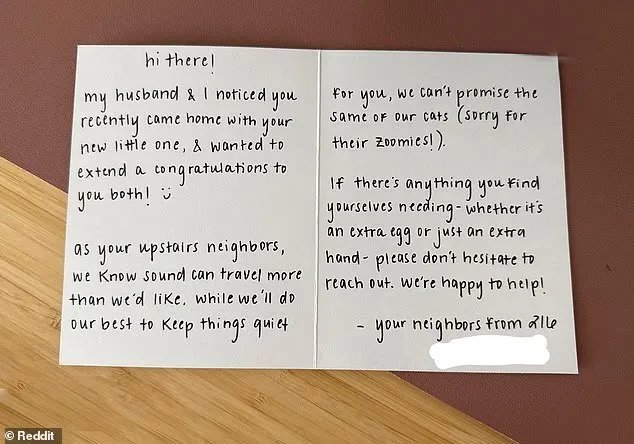 hi there!
my husband & I noticed you
recently came home with your
new little one, & wanted to
extend a congratulations to
you both! :)
as your upstairs neighbors,
we know sound can travel more
than we'd like. while we'll do
our best to keep things quiet
for you, we can't promise the
same of our cats (sorry for
their zoomies!).
If there's anything you find
yourselves needing - whether it's
an extra egg or just an extra
hand - please don't hesitate to
reach out. we're happy to help!
- your neighbors from 216
© Reddit